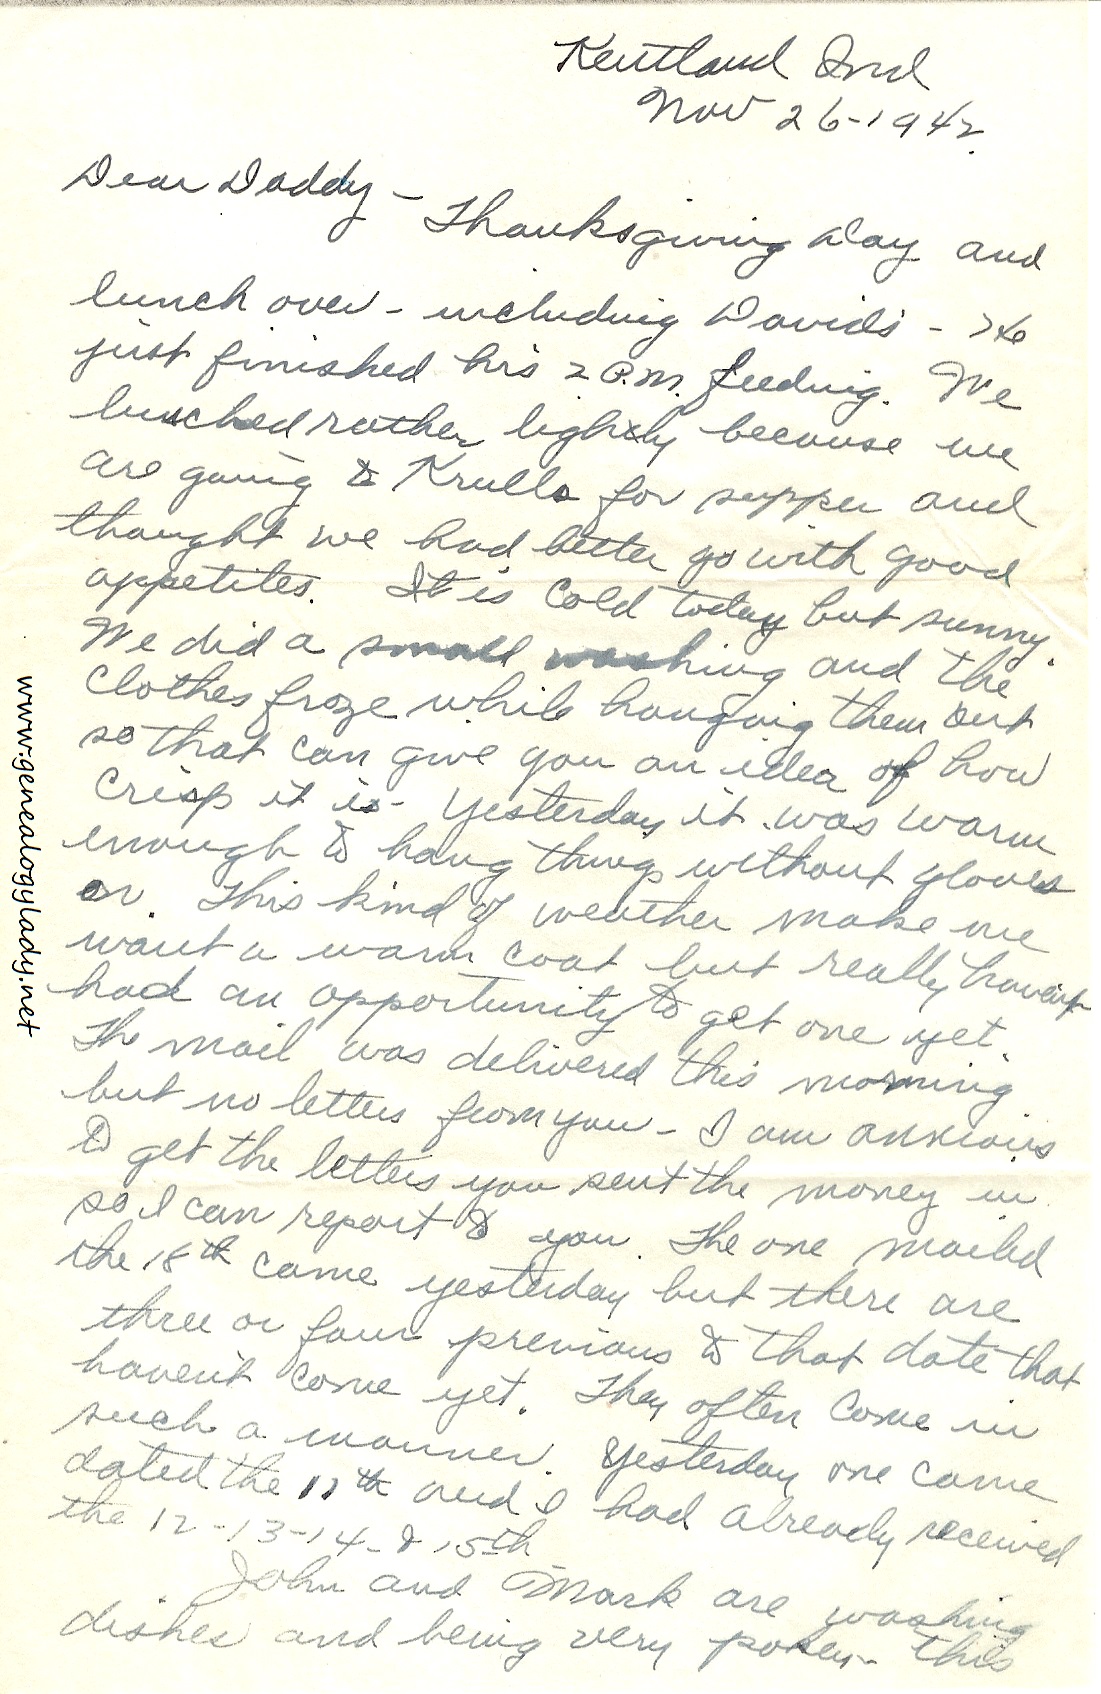 Kentland Ind
Nov 26-1942.
Dear Daddy - Thanksgiving day and
lunch over - including David's - He
just finished his 2 P.M. feeding. We
lunched rather lightly because we
are going to Krulls for supper and
thought we had better go with good
appetites. It is cold today but sunny.
We did a small washing and the
clothes froze while hanging them out
so that can give you an idea of how
crisp it is - Yesterday it was warm
enough to hang things without gloves
on. This kind of weather make me
want a warm coat but really haven't
had an opportunity to get one yet.
The mail was delivered this morning
but no letters from you - I am anxious
to get the letters you sent the money in
so I can report to you. The one mailed
the 18th came yesterday but there are
three or four previous to that date that
haven't come yet. They often come in
such a manner. Yesterday one came
dated the 11th and I had already received
the 12-13-14-& 15th
John and Mark are washing
dishes and being very pokey - this
www.genealogylady.net